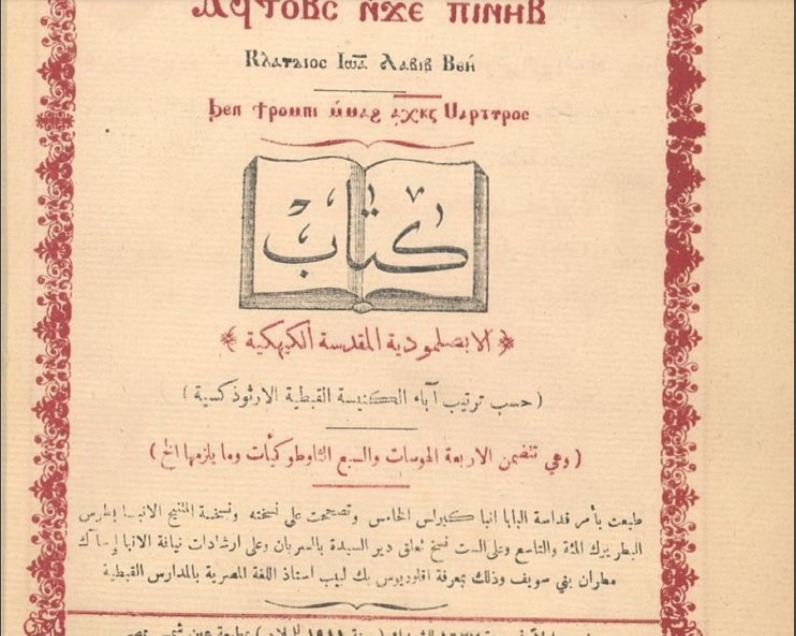 ⲀϤⲦⲞⲂⲤ ⲚϪⲈ ⲠⲒⲚⲎⲂ
Ⲕⲗⲁⲩⲇⲓⲟⲥ Ⲓⲱ̅ⲁ̅ Ⲗⲁⲃⲓⲃ Ⲃⲉⲏ̀
ϧⲉⲛ ϯⲣⲟⲙⲡⲓ ⲙ̀ⲙⲁϩ ⲁ̗ⲭⲕⲋ Ⲙⲁⲣⲧⲩⲣⲟⲥ
كتاب
الابصلمودية المقدسة الكيهكية
( حسب ترتيب آباء الكنيسة القبطية الارثوذكسية )
( وهي تتضمن الاربعة الهوسات والسبع الثاوطوكيات وما يلزمها الخ )
طبعت بأمر قداسة البابا انبا كيرلس الخامس وتصححت على نسخته ونسخة المتنيح الانبا بطرس
البطريرك المئة والتاسع وعلى الست نسخ تعلق دير السيدة بالسريان وعلى ارشادات نيافة الانبا إيساك
مطران بني سويف وذلك بمعرفة اقلوديوس بك لبيب استاذ اللغة المصرية بالمدارس القبطية